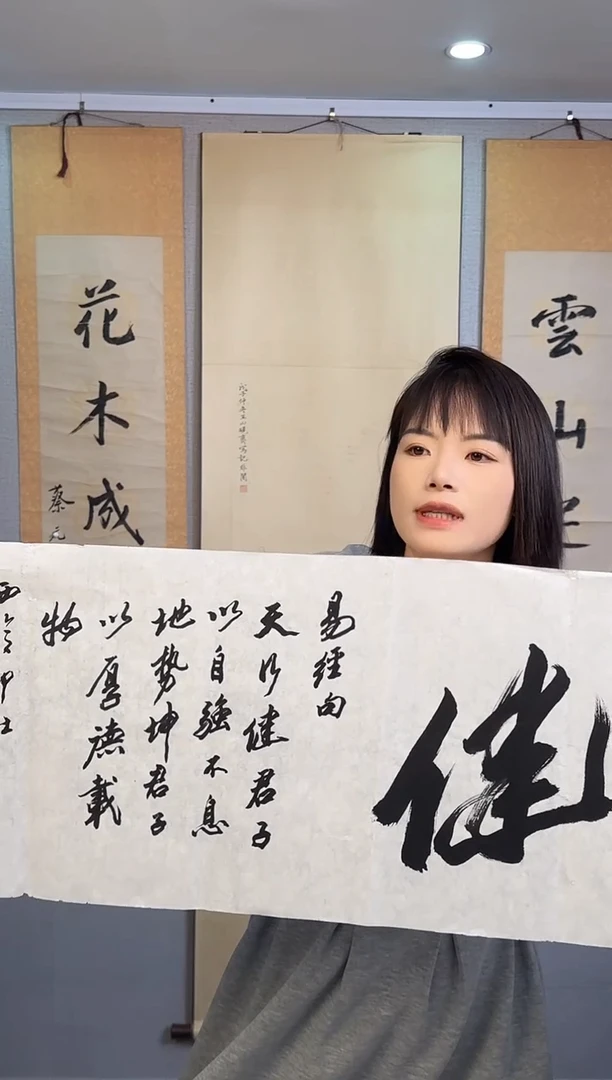 雲山
花木成
蔡元
健
易經句
天行健君子
以自強不息
地勢坤君子
以厚德載
物